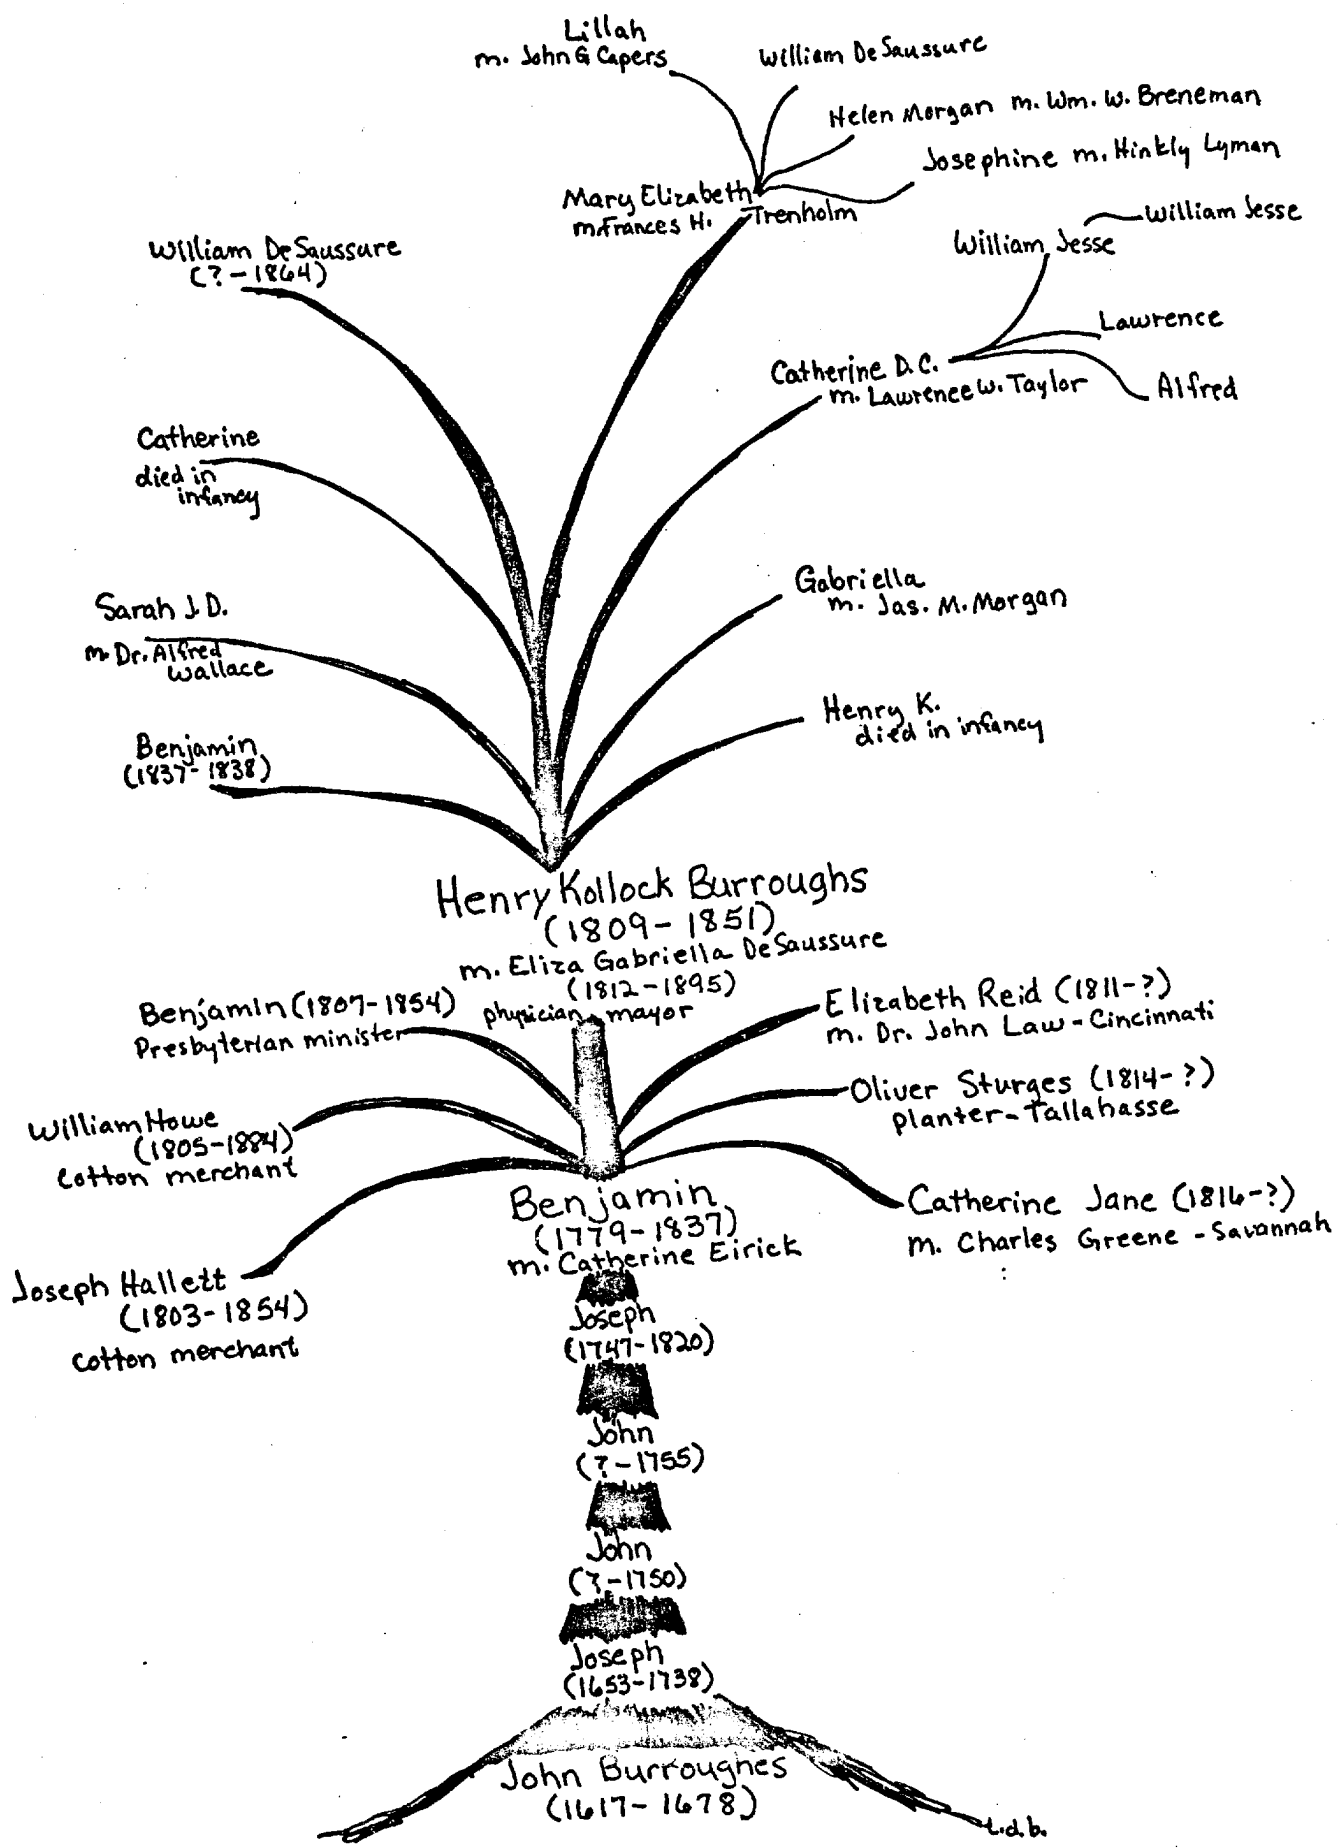 Lillah
m. John G Capers
William DeSaussure
Helen Morgan m. Wm. W. Breneman
Josephine m. Hinkly Lyman
Mary Elizabeth
m. Frances H. Trenholm
William Jesse
William Jesse
Lawrence
Alfred
Catherine D.C.
m. Lawrence W. Taylor
William DeSaussure
(?-1864)
Catherine
died in
infancy
Sarah J.D.
m. Dr. Alfred
Wallace
Benjamin
(1837-1838)
Gabriella
m. Jas. M. Morgan
Henry K.
died in infancy
Henry Kollock Burroughs
(1809-1851)
m. Eliza Gabriella DeSaussure
(1812-1895)
physician-mayor
Benjamin (1807-1854)
Presbyterian minister
Elizabeth Reid (1811-?)
m. Dr. John Law-Cincinnati
William Howe
(1805-1884)
cotton merchant
Oliver Sturges (1814-?)
planter-Tallahasse
Joseph Hallett
(1803-1854)
cotton merchant
Catherine Jane (1816-?)
m. Charles Greene - Savannah
Benjamin
(1779-1837)
m. Catherine Eirick
Joseph
(1747-1820)
John
(?-1755)
John
(?-1750)
Joseph
(1653-1738)
John Burroughes
(1617-1678)
t.d.b.